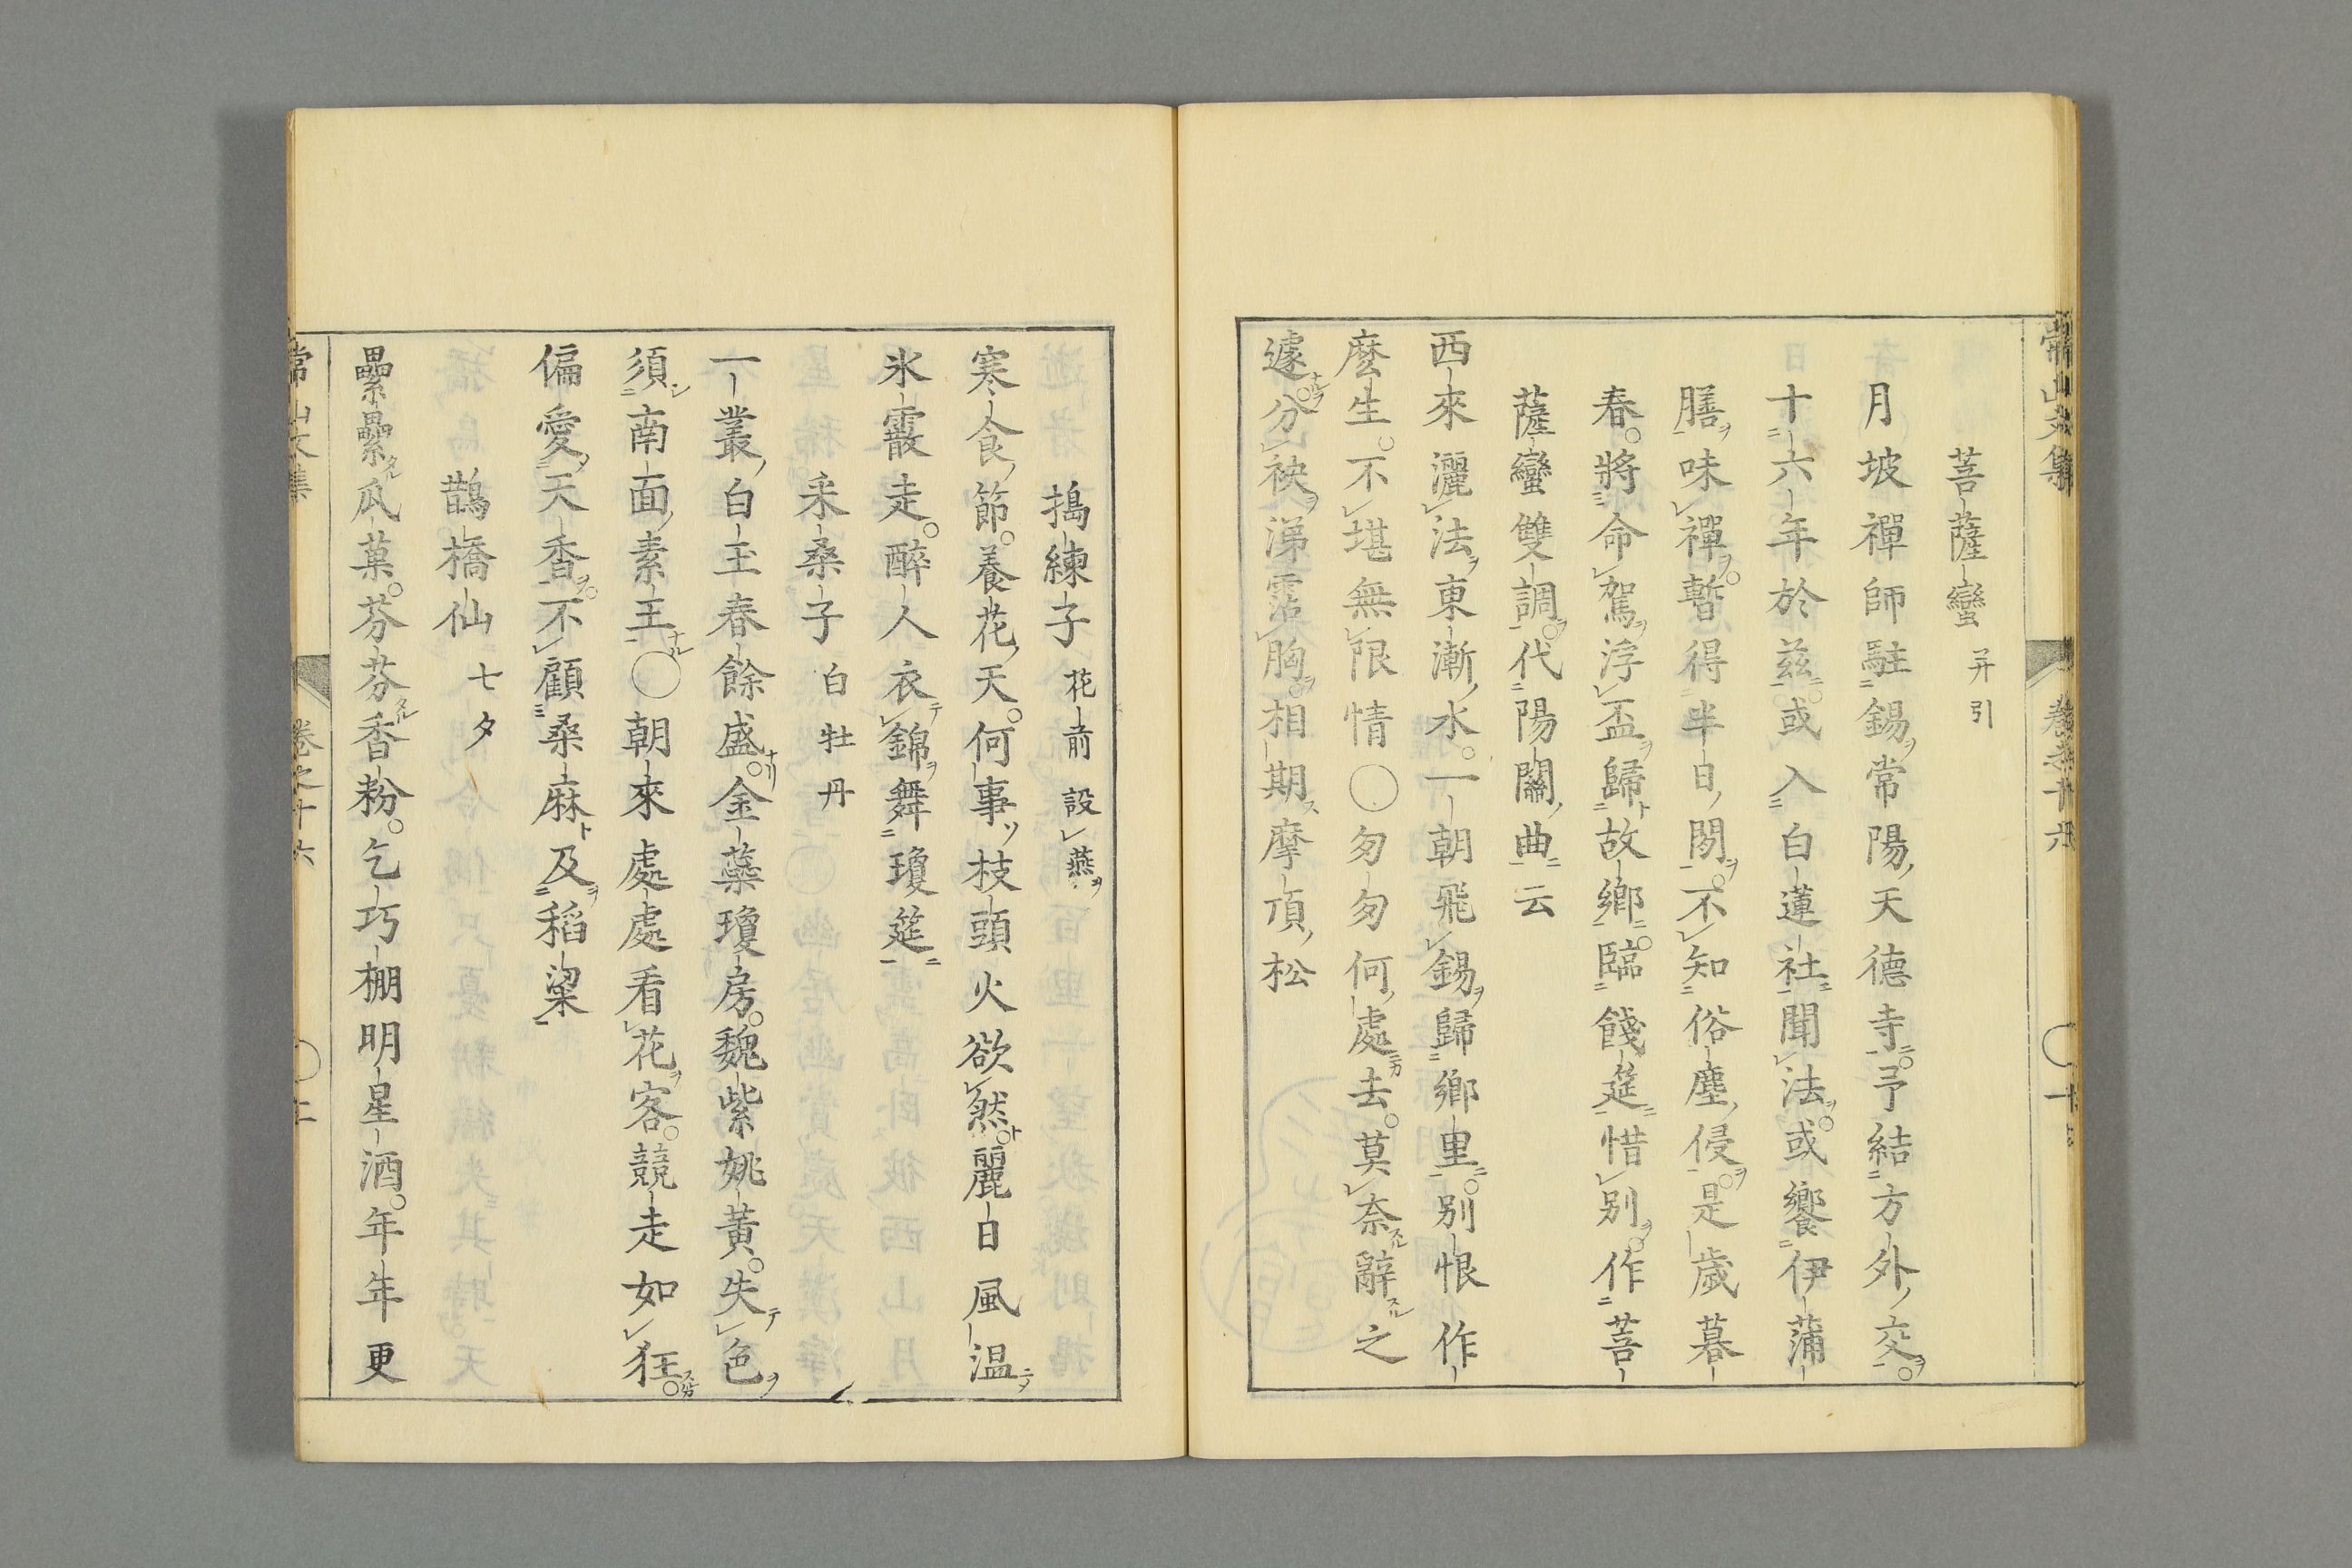 常山文集
卷之十六
菩薩蠻 并引
月坡禪師駐錫常陽天德寺予結方外交
十六年於茲或入白蓮社聞法或饗伊蒲
膳味禪暫得半日閑不知俗塵侵是歲暮
春將命駕浮盃歸故鄉臨餞筵惜別作菩
薩蠻雙調代陽關曲云
西來灑法東漸水一朝飛錫歸鄉里別恨作
麽生不堪無限情〇匆匆何處去莫奈辭之
遽分袂涕霑胸相期摩頂松
搗練子 花前設燕
寒食節養花天何事枝頭火欲然麗日風溫
氷霰走醉人衣錦舞瓊筵
采桑子 白牡丹
一叢白玉春餘盛金藥瓊房魏紫姚黃失色
須南面素王〇朝來處處看花客競走如狂
偏愛天香不顧桑麻及稻粱
鵲橋仙 七夕
纍纍瓜菓芬芬香粉乞巧棚明星酒年年更
常山文集
卷之十六